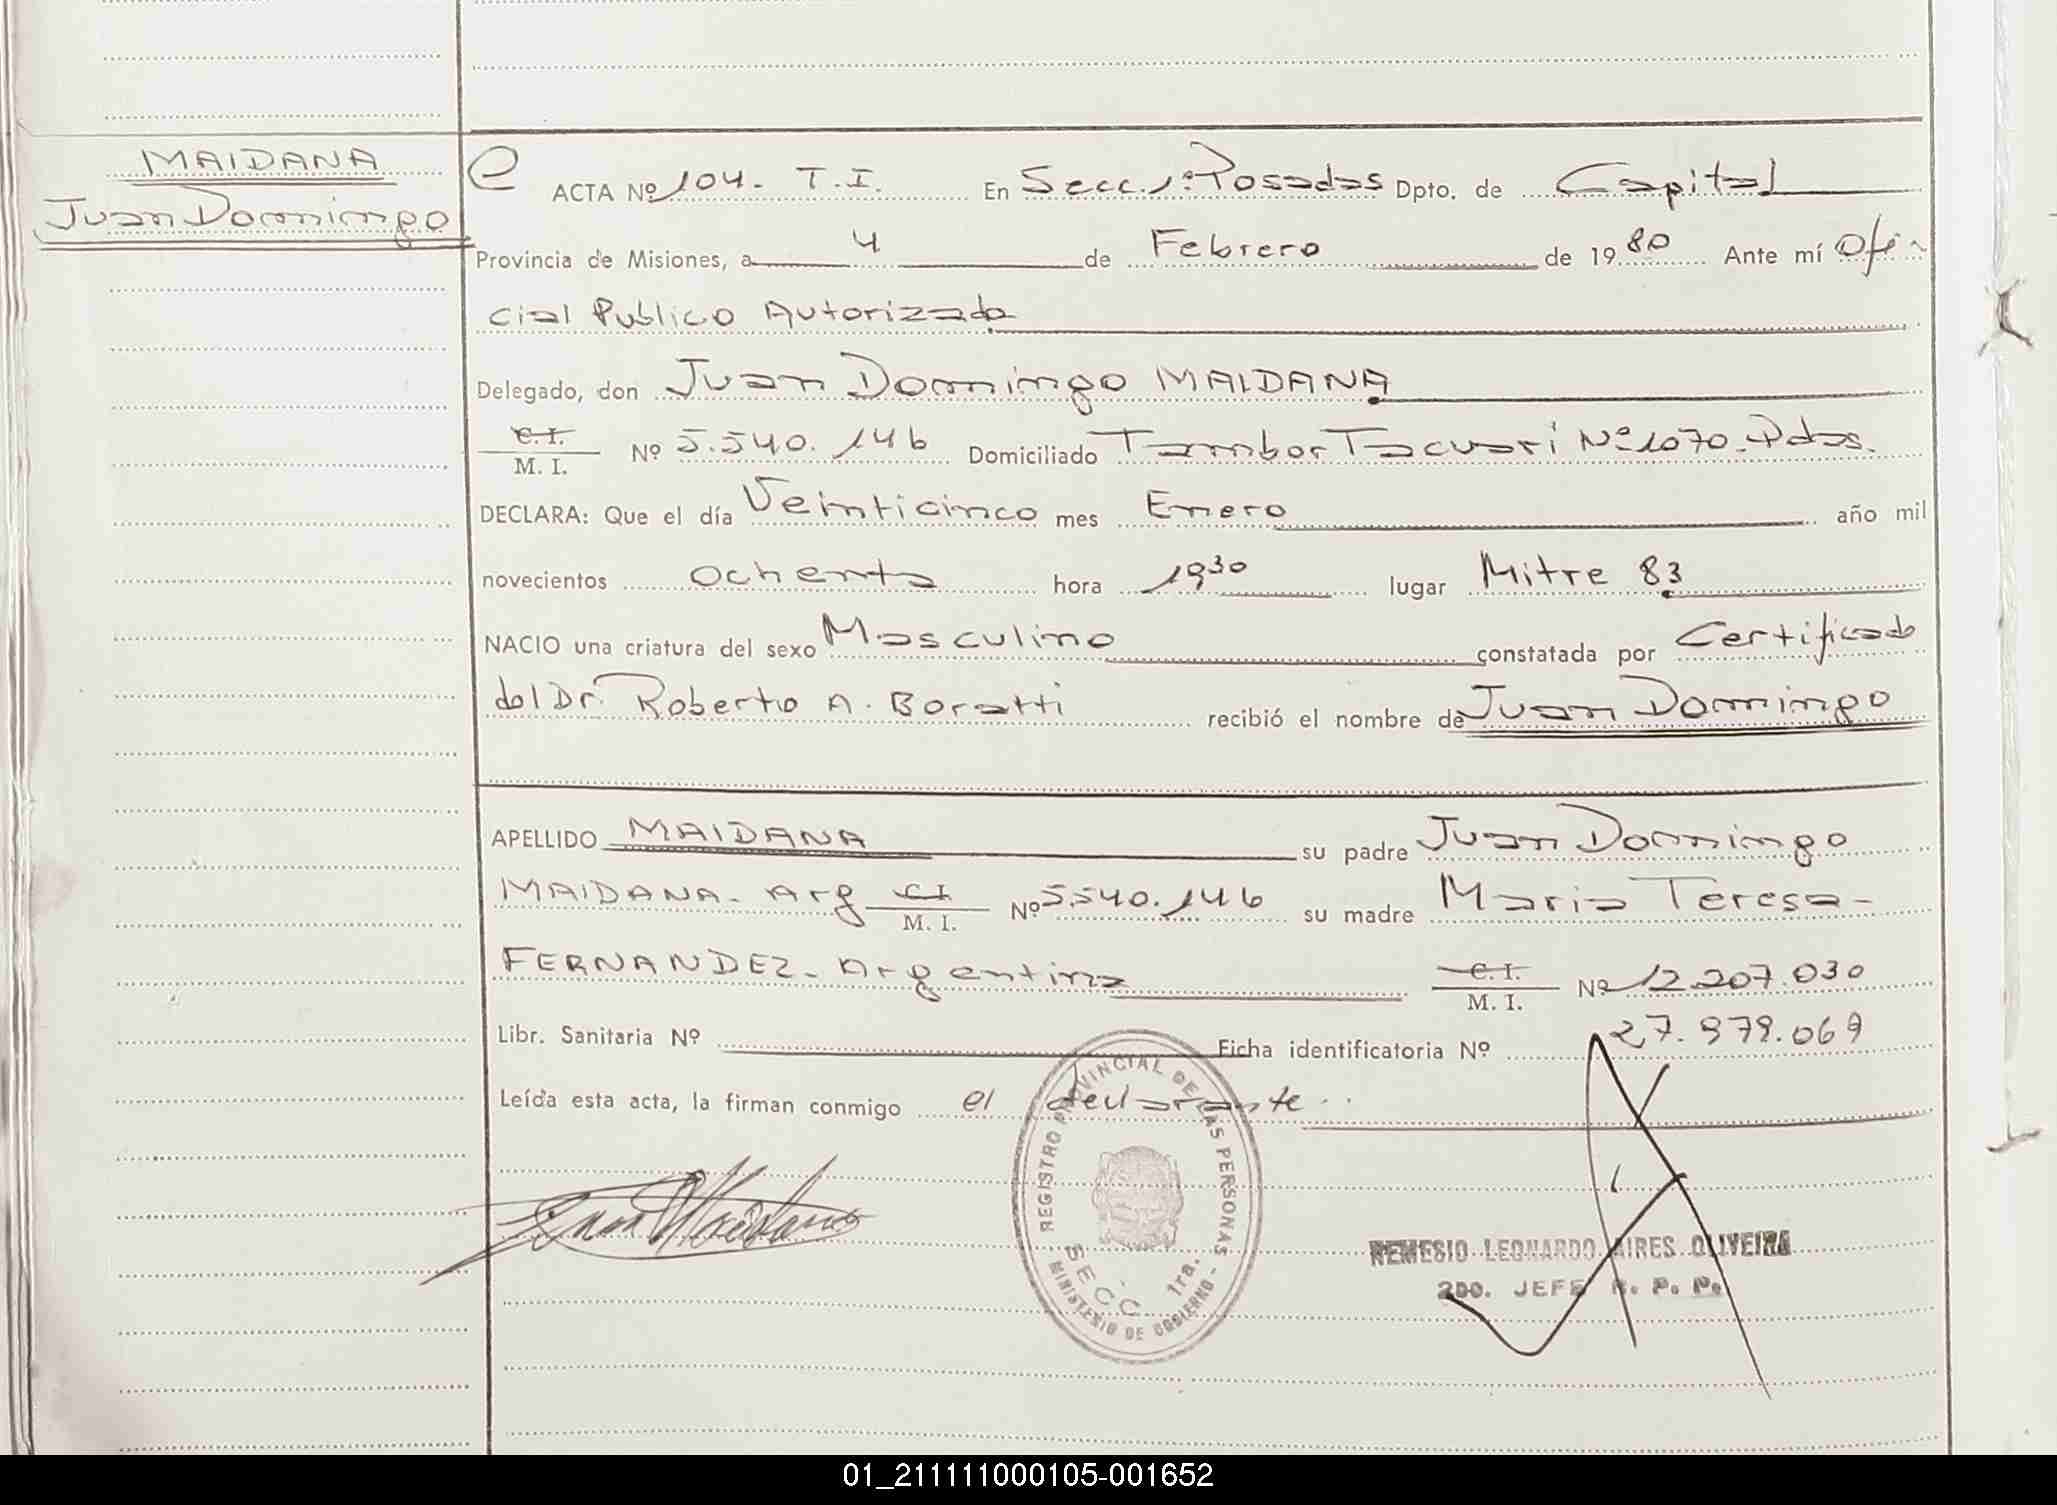 MAIDANA
Juan Domingo
ACTA Nº 104. T.I. En Secc. 1ª Posadas Dpto. de Capital
Provincia de Misiones, a 4 de Febrero de 1980 Ante mí Ofi-
cial Publico Autorizado
Delegado, don Juan Domingo MAIDANA
C. I.
M. I.
Nº 5.540.146 Domiciliado Tambor Tacuarí Nº 1070. Pdas.
DECLARA: Que el día Veinticinco mes Enero año mil
novecientos ochenta hora 19 30 lugar Mitre 83
NACIO una criatura del sexo Masculino constatada por Certificado
del Dr. Roberto A. Boratti recibió el nombre de Juan Domingo
APELLIDO MAIDANA su padre Juan Domingo
MAIDANA - Arg C.I. M. I. Nº 5.540.146 su madre Maria Teresa -
FERNANDEZ - Argentina C. I. M. I. Nº 12.207.030
Libr. Sanitaria Nº Ficha identificatoria Nº 27.979.069
Leída esta acta, la firman conmigo el declarante..
REGISTRO PROVINCIAL DE LAS PERSONAS
SECC. 1ra.
MINISTERIO DE GOBIERNO
Juan Maidana
REMESIO LEONARDO AIRES OLIVEIRA
2DO. JEFE R. P. P.
01_211111000105-001652